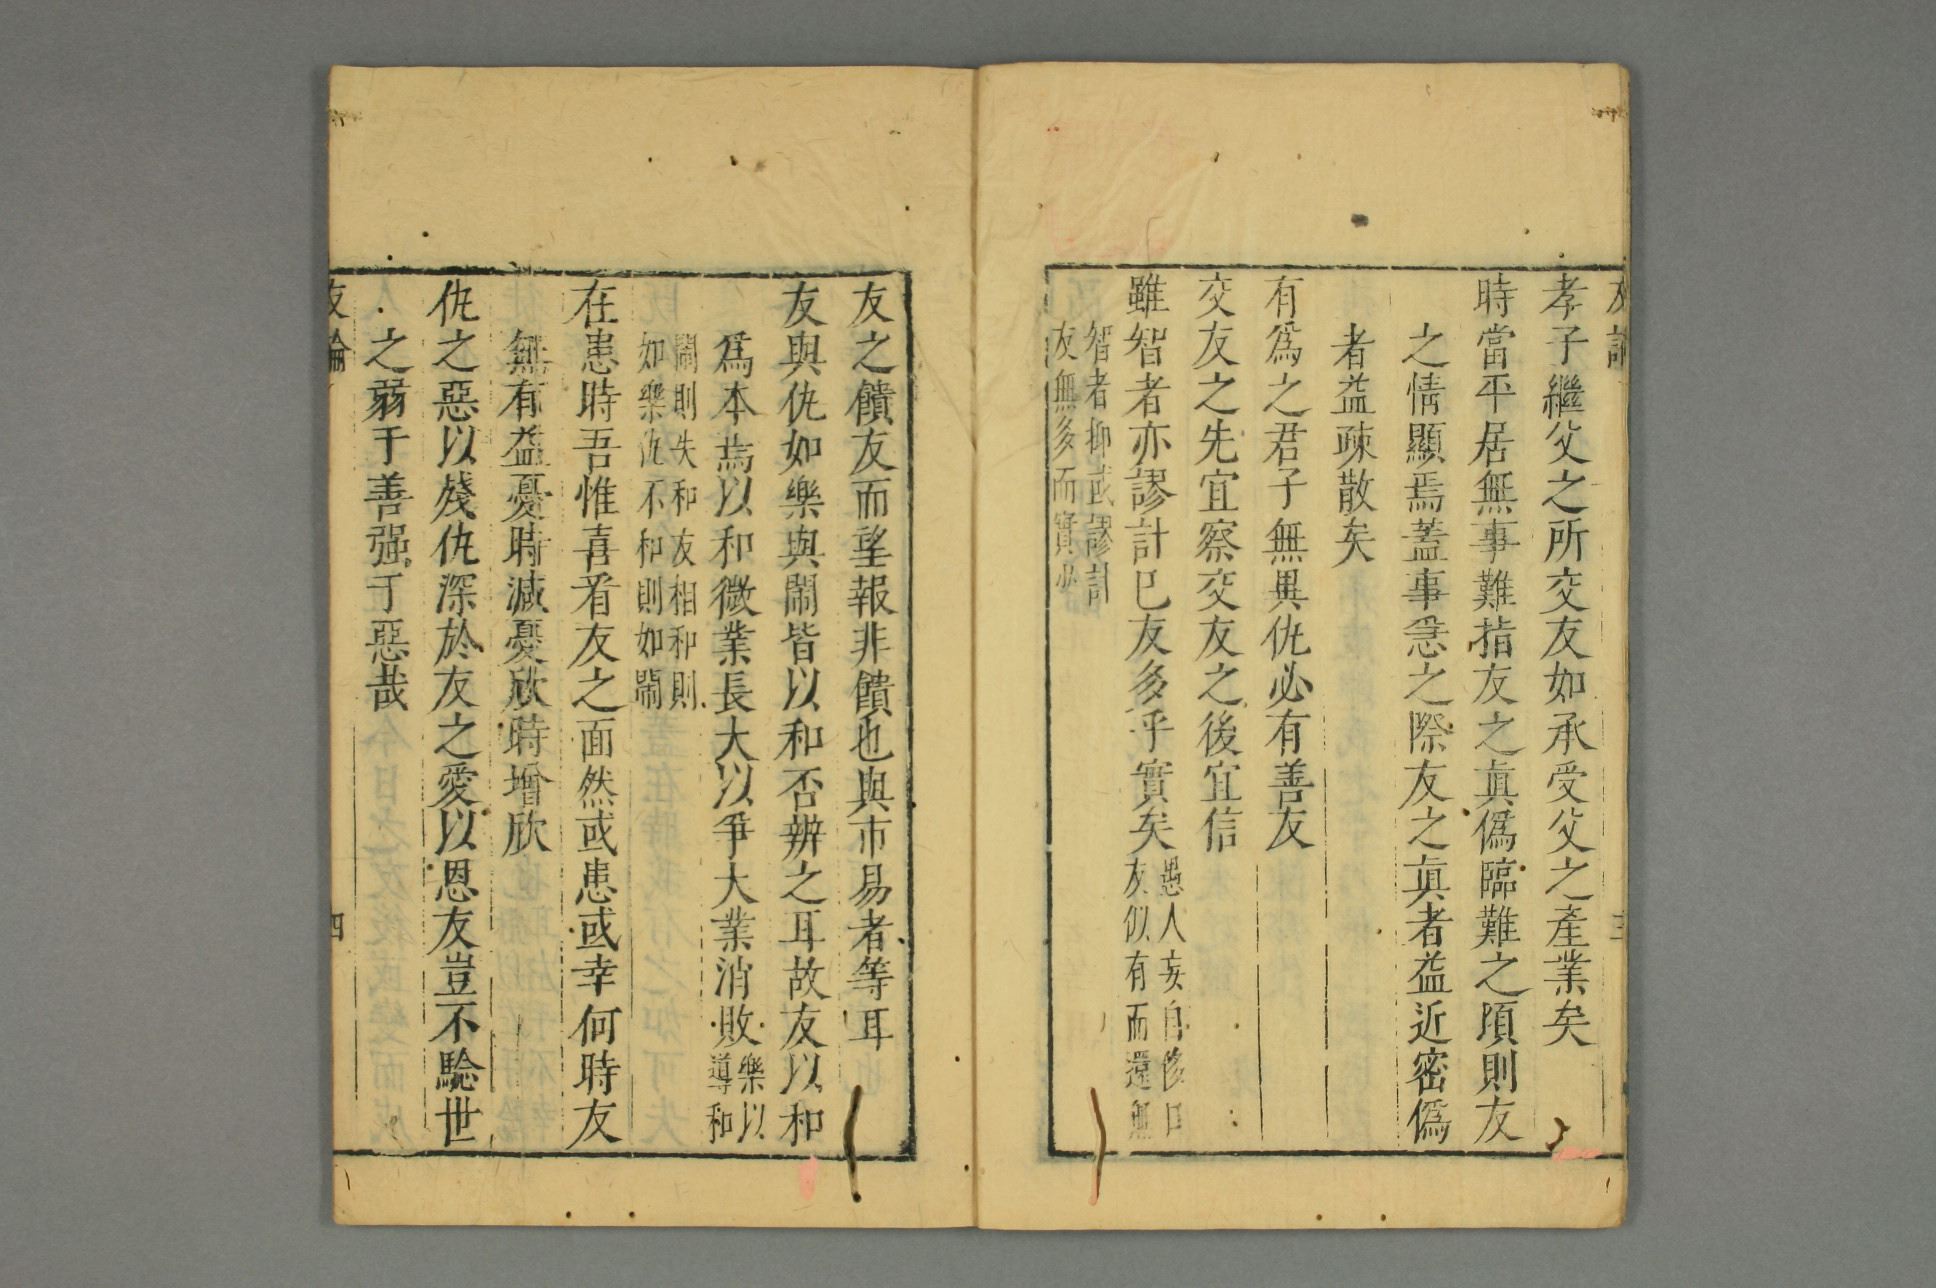 友論
三
孝子繼父之所交友如承受父之產業矣
時當平居無事難指友之真僞臨難之頃則友
之情顯焉蓋事急之際友之真者益近密僞
者益疎散矣
有爲之君子無異仇必有善友
交友之先宜察交友之後宜信
雖智者亦謬計已友多乎實矣愚人妄自侈口
友似有而還無
智者抑或謬計
友無多而實少
友之饋友而望報非饋也與市易者等耳
友與仇如樂與鬧皆以和否辨之耳故友以和
爲本焉以和微業長大以爭大業消敗樂以
導和
鬧則失和友相和則
如樂仇不和則如鬧
在患時吾惟喜看友之面然或患或幸何時友
無有益憂時減憂欣時增欣
仇之惡以殘仇深於友之愛以恩友豈不驗世
之弱于善强于惡哉
友論
四